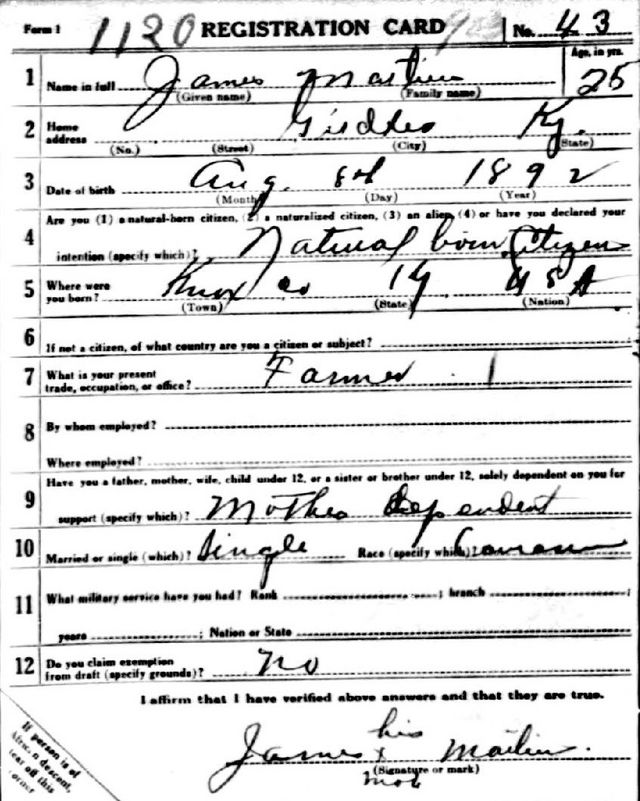 Form 1 1120 REGISTRATION CARD No. 43
1 Name in full James Martin Age, in yrs. 25
(Given name) (Family name)
2 Home address Ky.
(No.) (Street) (City) (State)
3 Date of birth Aug. 8th 1892
(Month) (Day) (Year)
Are you (1) a natural-born citizen, (2) a naturalized citizen, (3) an alien, (4) or have you declared your
4 intention (specify which)? Natural born Citizen
5 Where were you born? Knox Co Ky USA
(Town) (State) (Nation)
6 If not a citizen, of what country are you a citizen or subject?
7 What is your present trade, occupation, or office? Farmer 1
8 By whom employed?
Where employed?
Have you a father, mother, wife, child under 12, or a sister or brother under 12, solely dependent on you for
9 support (specify which)? Mother dependent
10 Married or single (which)? Single Race (specify which)?
11 What military service have you had? Rank ; branch ;
years ; Nation or State
12 Do you claim exemption from draft (specify grounds)? No
I affirm that I have verified above answers and that they are true.
his
James x Martin.
(Signature or mark)
mark
If person is of
African descent,
tear off this
corner